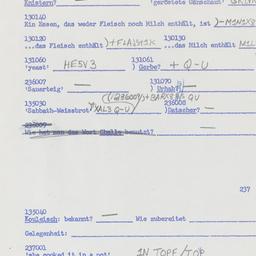 Knistern? 'geröstete
130140
Ein Essen, das weder Fleisch noch Milch enthält, ist )-M1N1X8
130120 130130
...das Fleisch enthält )+FLA1S1X ...das Milch enthält
131060 131061
'yeast' HE5V3 ) Gerbe? + Q-U
236007 131070
'Sauerteig' — ) Urhab?
135030 236008
'Sabbath-Weissbrot' XAL3 Q-U ) Datscher? —
236009
Wie hat man das Wort Challe benutzt? —
237
135040
Kouleisch: bekannt? — Wie zubereitet
Gelegenheit:
237001
'she cooked it in a pot' IN TOPF/TOP